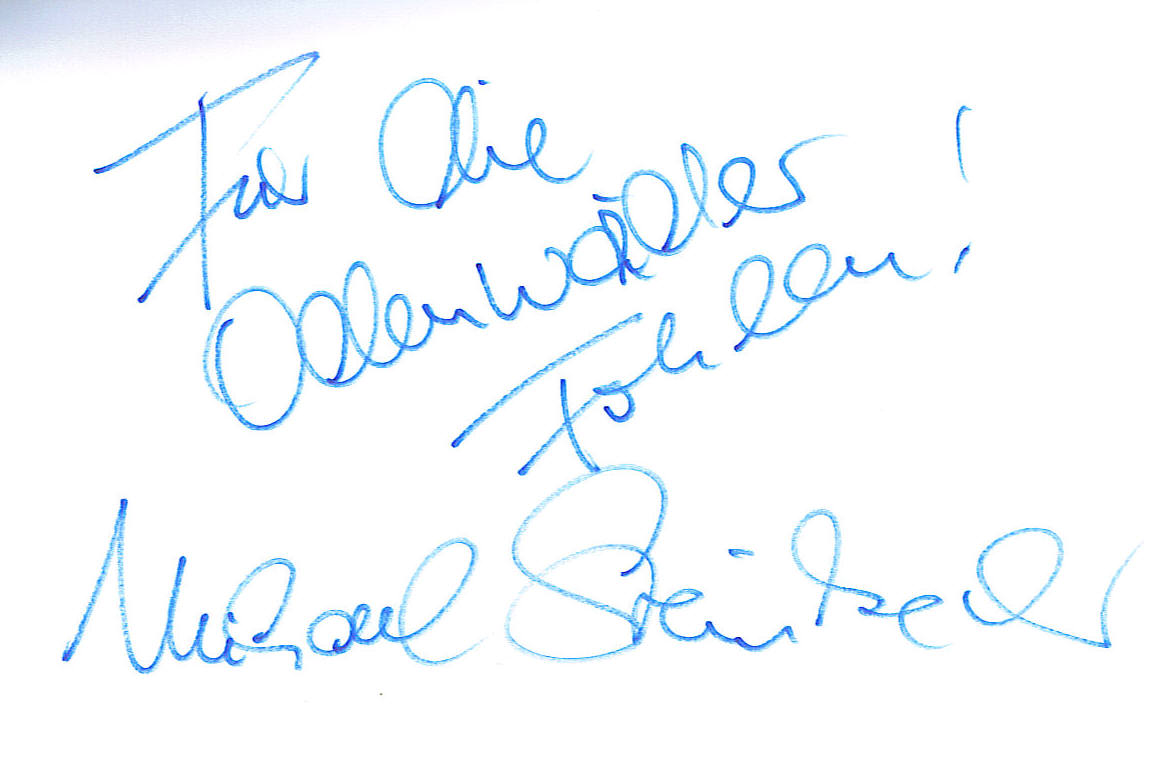 Für die
Odenwälder
Fohlen!
Michael Steinbrecher